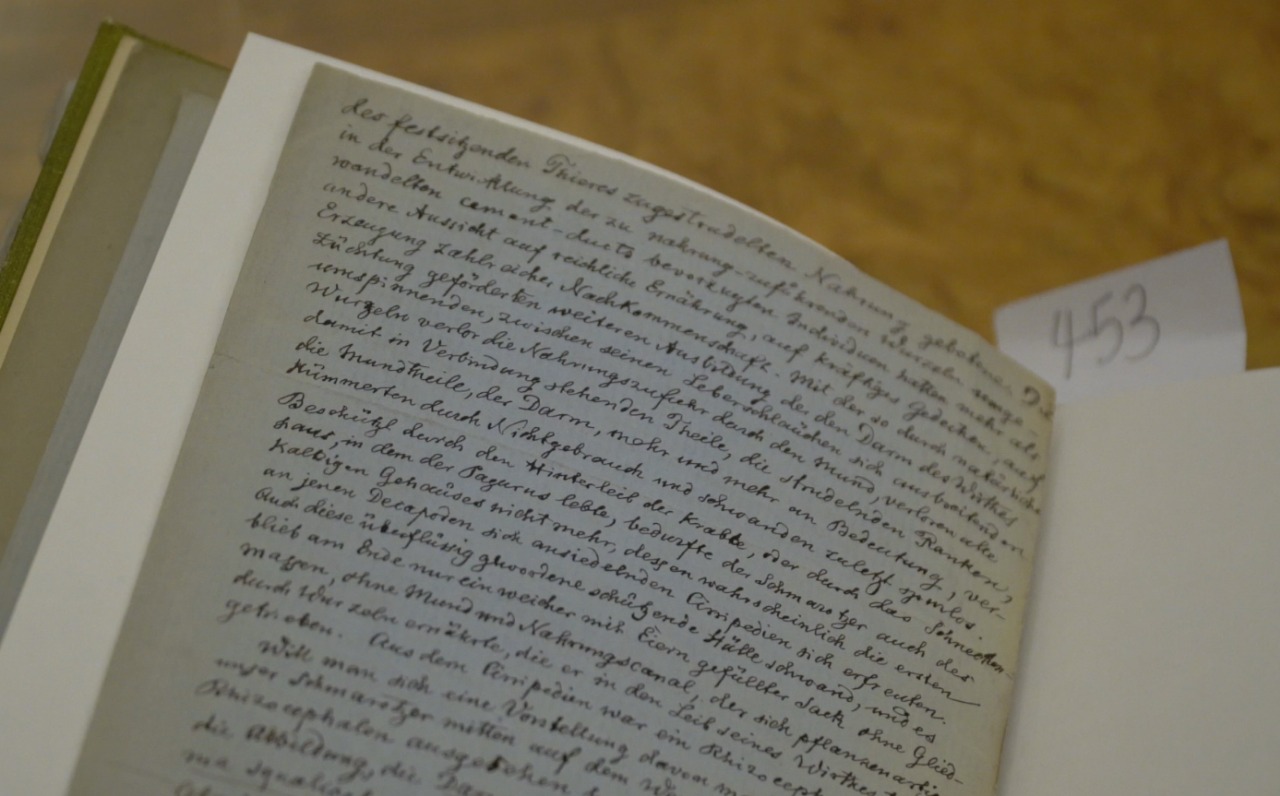 des festsitzenden Thieres zugestrudelten Nahrung gebotenen. Die
in der Entwicklung der zu nahrung-zuführenden Wurzeln umge-
wandelten cement-ducts bevorzugten Individuen hatten mehr als
andere Aussicht auf reichliche Ernährung, auf kräftiges Gedeihen, auf
Erzeugung zahlreicher Nachkommenschaft. Mit der so durch natürliche
Züchtung geförderten weiteren Ausbildung der den Darm des Wirthes
umspinnenden, zwischen seinen Leberschläuchen sich ausbreitenden
Wurzeln verlor die Nahrungszufuhr durch den Mund, verloren alle
damit in Verbindung stehenden Theile, die strudelnden Ranken,
die Mundtheile, der Darm, mehr und mehr an Bedeutung, ver-
kümmerten durch Nichtgebrauch und schwanden zuletzt spurlos.
Beschützt durch den Hinterleib der Krabbe, oder durch das Schnecken-
haus, in dem der Pagurus lebte, bedurfte der Schmarotzer auch des
kalkigen Gehäuses nicht mehr, dessen wahrscheinlich die ersten
an jenen Decapoden sich ansiedelnden Cirripedien sich erfreuten.
Auch diese überflüssig gewordene schützende Hülle schwand, und es
blieb am Ende nur ein weicher mit Eiern gefüllter Sack ohne Glied-
massen, ohne Mund und Nahrungscanal, der sich pflanzenartig
durch Wurzeln ernährte, die er in den Leib seines Wirthes
getrieben. Aus dem Cirripedien war ein Rhizoceph
Will man sich eine Vorstellung davon m
unser Schmarotzer mitten auf dem We
Rhizocephalen ausgesehen
die Abbildung, die Dar
ma squalic
453